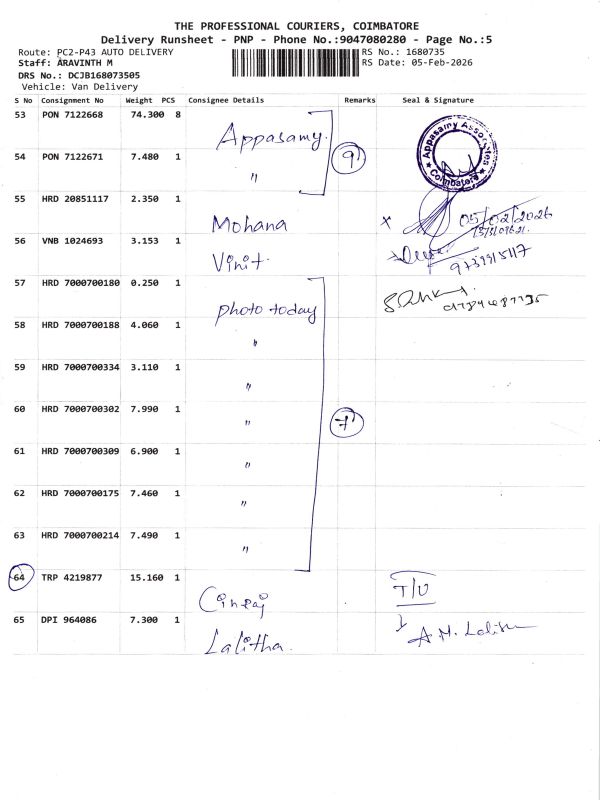 THE PROFESSIONAL COURIERS, COIMBATORE
Delivery Runsheet - PNP - Phone No.:9047080280 - Page No.:5
Route: PC2-P43 AUTO DELIVERY
RS No.: 1680735
Staff: ARAVINTH M
RS Date: 05-Feb-2026
DRS No.: DCJB168073505
Vehicle: Van Delivery
S No Consignment No Weight PCS Consignee Details Remarks Seal & Signature
53 PON 7122668 74.300 8 Appasamy
9
Appasamy Associates
Coimbatore
54 PON 7122671 7.480 1 "
55 HRD 20851117 2.350 1 Mohana x 05/02/2026
56 VNB 1024693 3.153 1 Vinit
57 HRD 7000700180 0.250 1 photo today
58 HRD 7000700188 4.060 1 "
59 HRD 7000700334 3.110 1 "
60 HRD 7000700302 7.990 1 " 7
61 HRD 7000700309 6.900 1 "
62 HRD 7000700175 7.460 1 "
63 HRD 7000700214 7.490 1 "
64 TRP 4219877 15.160 1 T/U
65 DPI 964086 7.300 1 Lalitha